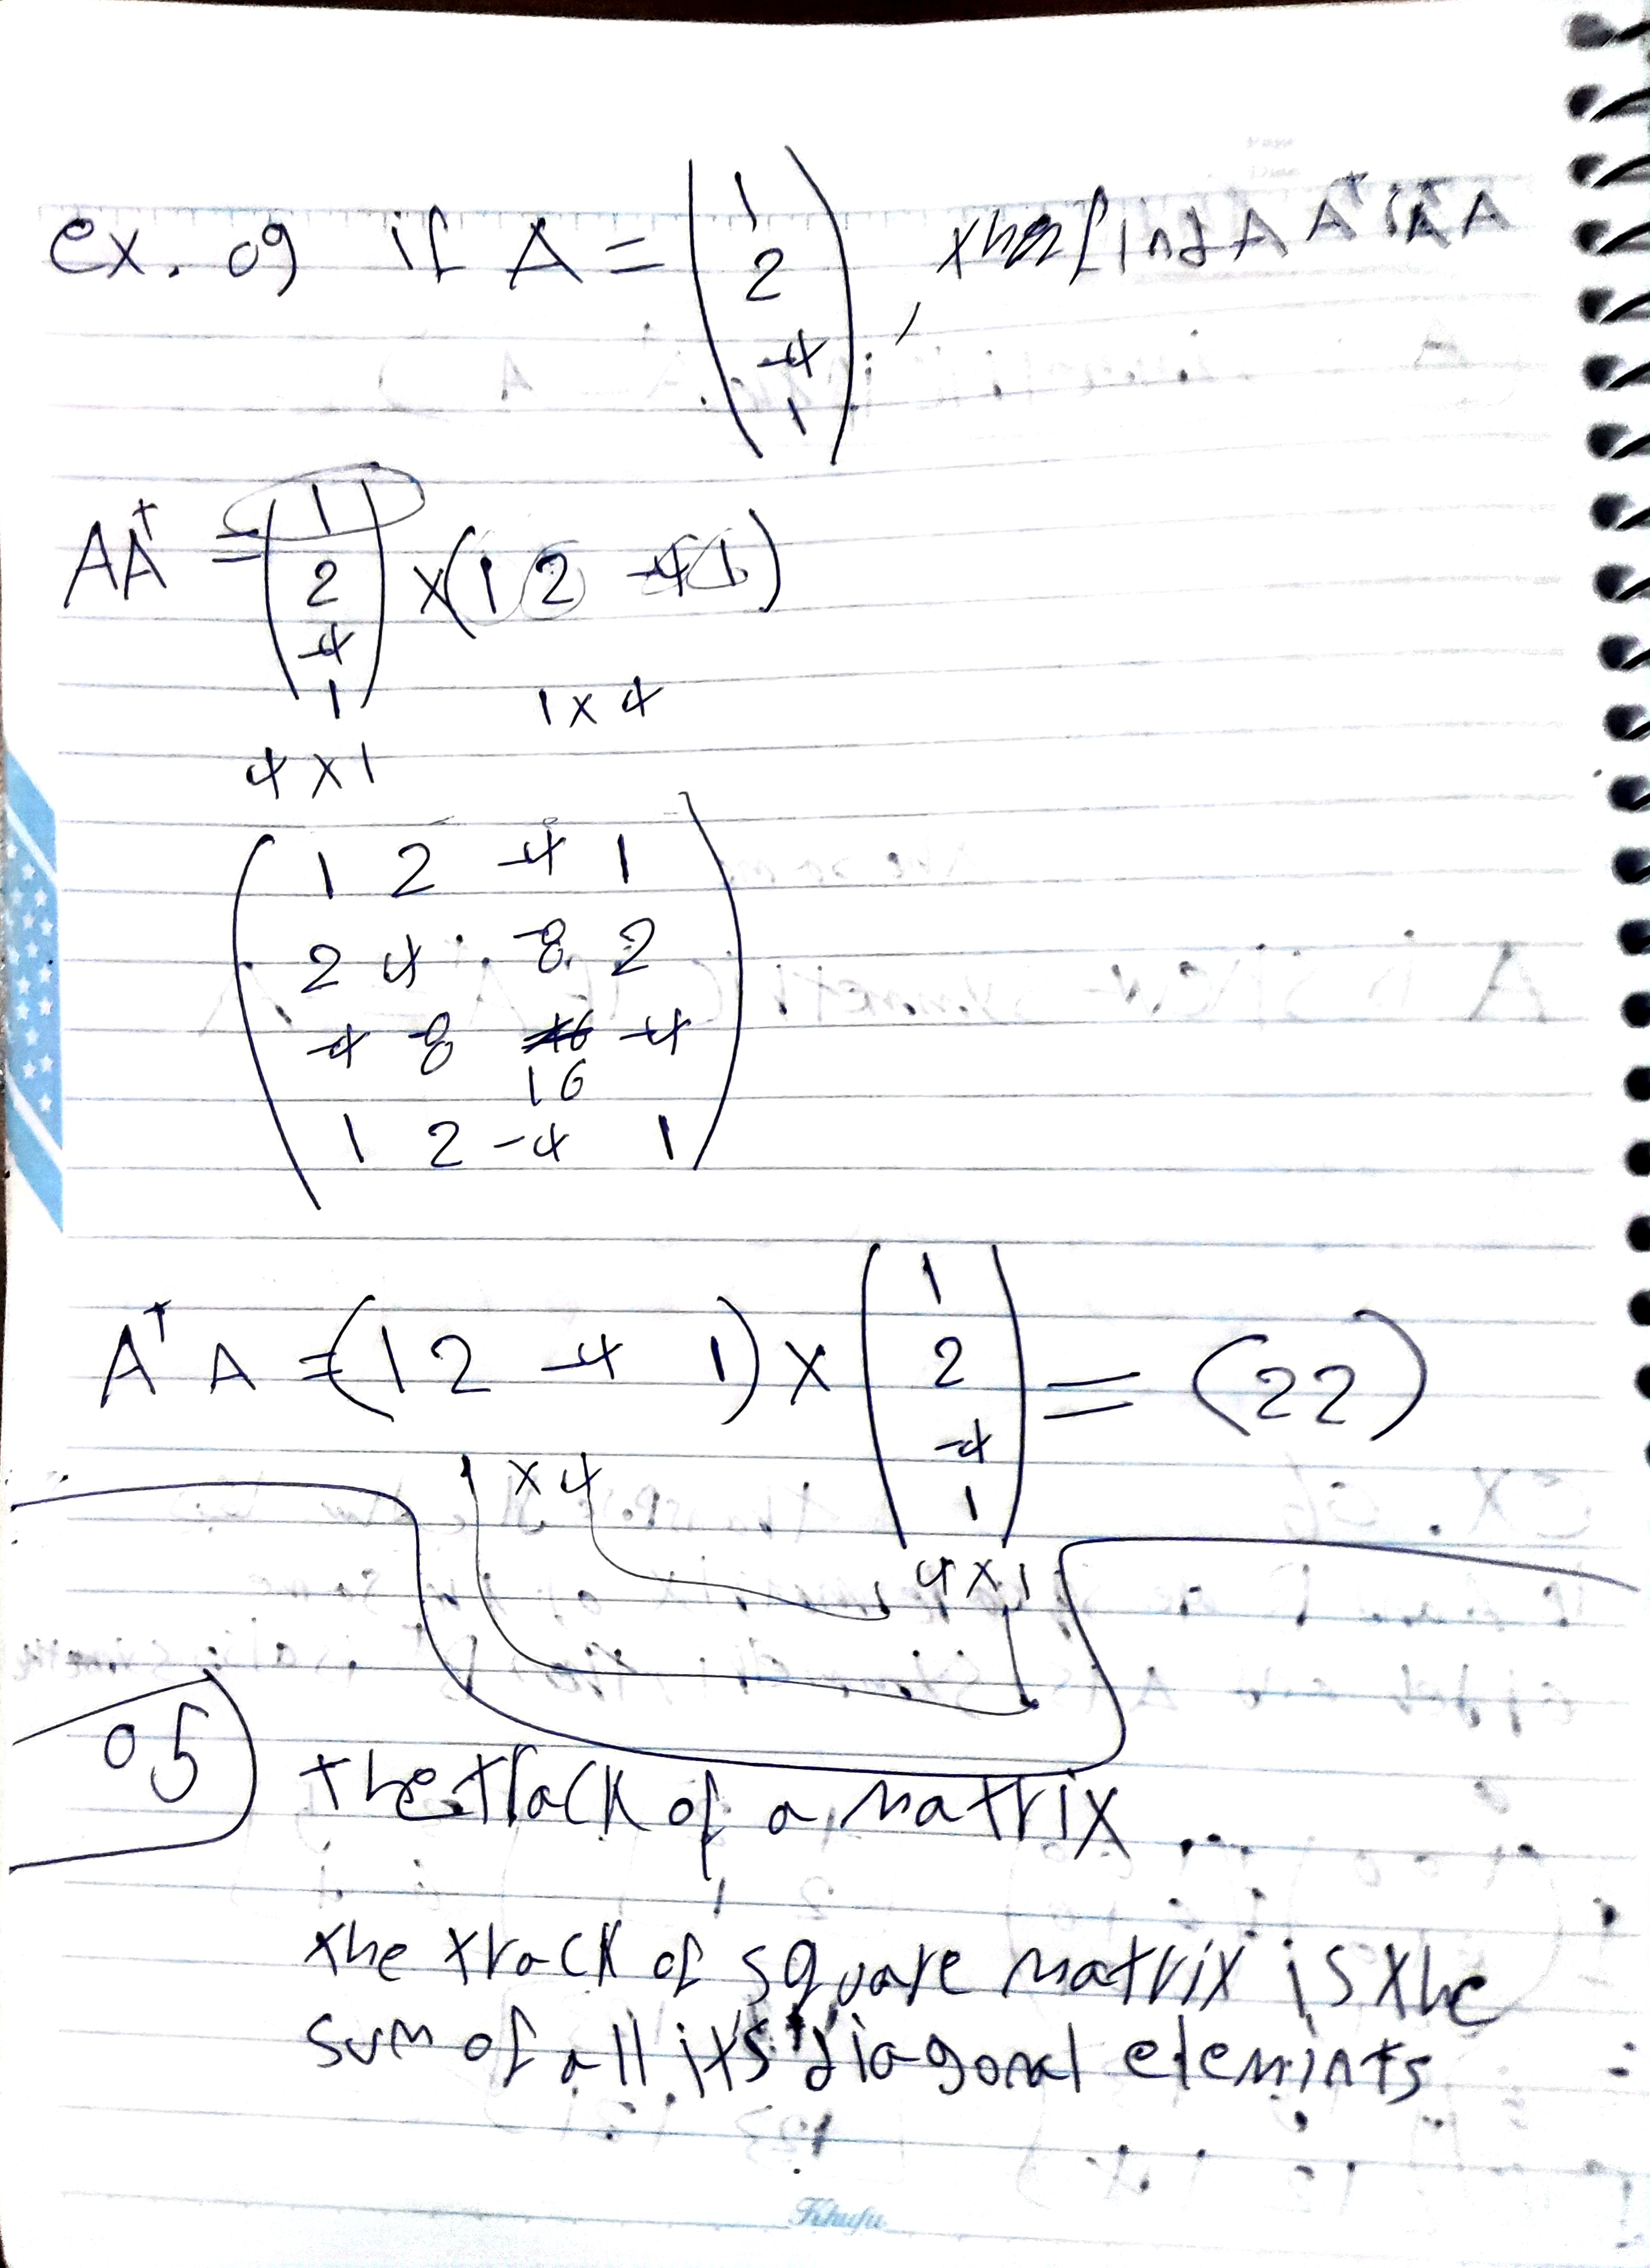 ex. 09 if A = ( 1 2 -4 1 ) , then find A Aᵀ, Aᵀ A
AAᵀ = ( 1 2 -4 1 ) × ( 1 2 -4 1 )
1 × 4
4 × 1
1 2 -4 1
2 4 -8 2
-4 -8 16 -4
1 2 -4 1
Aᵀ A = ( 1 2 -4 1 ) × ( 1 2 -4 1 ) = (22)
1 × 4
4 × 1
05 the track of a matrix ..
the track of square matrix is the
sum of all its diagonal elemints
Khufu